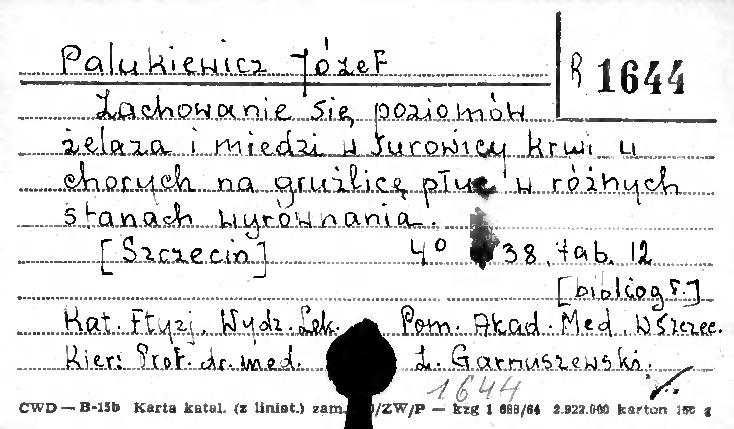 Palukiewicz Józef
R 1644
Zachowanie się poziomów
żelaza i miedzi w surowicy krwi u
chorych na gruźlicę płuc w różnych
stanach wyrównania.
[Szczecin] 4° 38, tab. 12
[bibliogr.]
Kat. Ftyzj. Wydz. Lek. Pom. Akad. Med. w Szczec.
Kier: Prof. dr. med. Garnuszewski.
1644
CWD — B-15b Karta katal. (z liniat.) zam. /ZW/P — kzg 1 688/64 2.922.000 karton 150 g